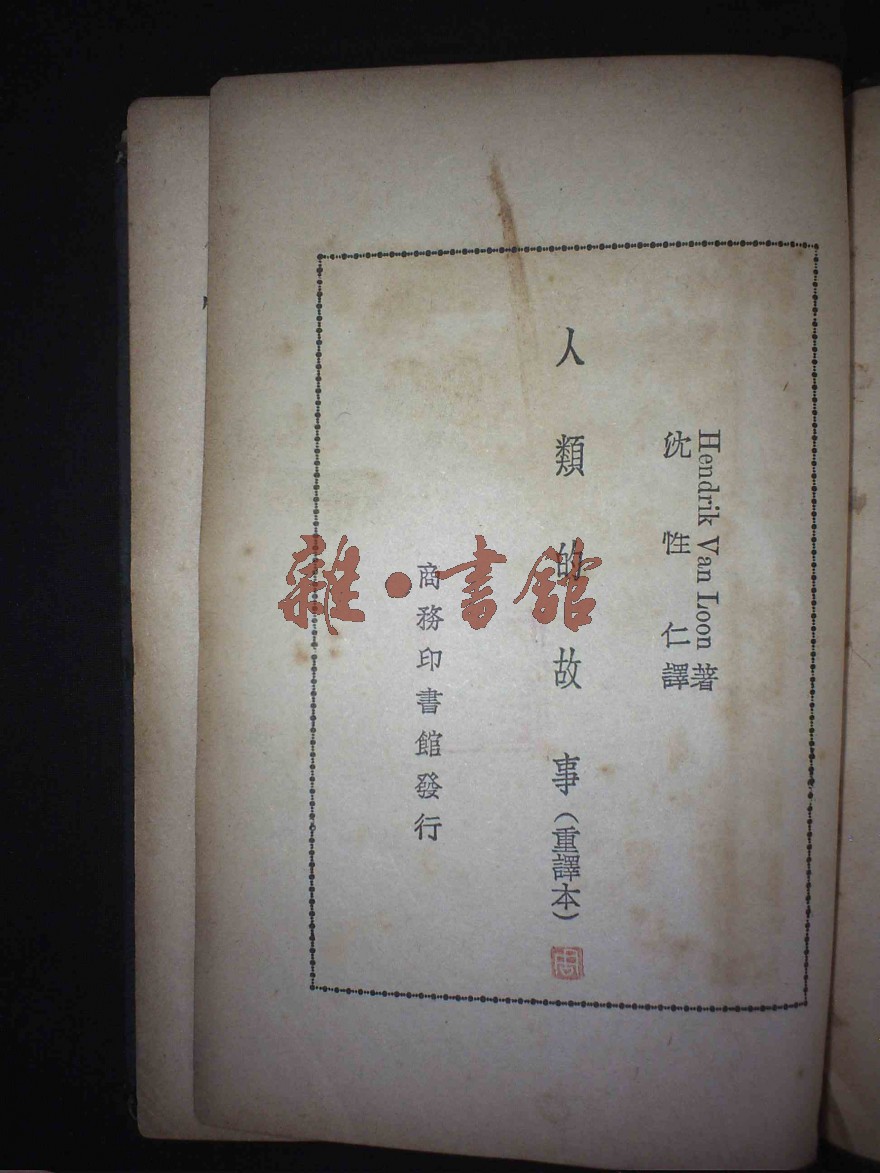 Hendrik Van Loon 著
沈性仁譯
人類的故事（重譯本）
商務印書館發行
雜·書館